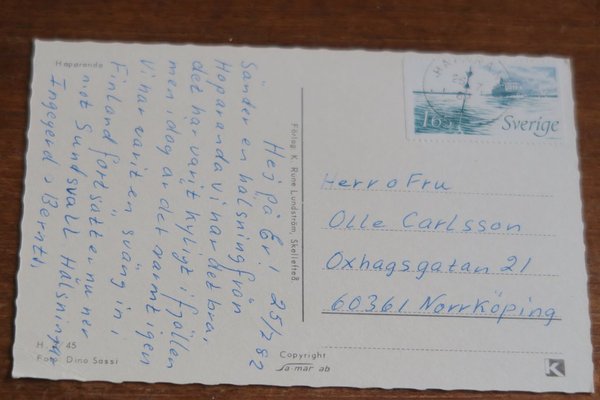 Haparanda
Hej på Er! 25/7 82
Sänder en hälsning från
Haparanda vi har det bra,
det har varit kyligt i fjällen
men idag är det varmt igen
Vi har varit en sväng in i
Finland fortsätter nu ner
mot Sundsvall Hälsningar
Ingegerd o Bernt.
H 45
Foto: Dino Sassi
Förlag K. Rune Lundström, Skellefteå
Copyright
Sa mar ab
165
Sverige
Herr o Fru
Olle Carlsson
Oxhagsgatan 21
60361 Norrköping
K